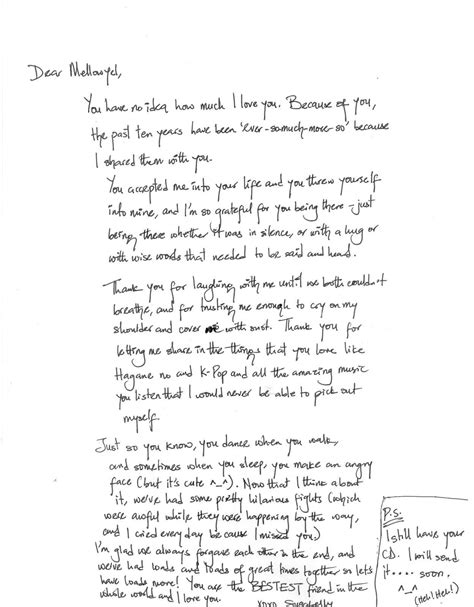 Dear Mellowyel,
You have no idea how much I love you. Because of you,
the past ten years have been 'ever-so-much-more-so' because
I shared them with you.
You accepted me into your life and you threw yourself
into mine, and I'm so grateful for you being there - just
being there whether it was in silence, or with a hug or
with wise words that needed to be said and heard.
Thank you for laughing with me until we both couldn't
breathe, and for trusting me enough to cry on my
shoulder and cover me with snot. Thank you for
letting me share in the things that you love like
Hagane no and K-Pop and all the amazing music
you listen that I would never be able to pick out
myself.
Just so you know, you dance when you walk,
and sometimes when you sleep, you make an angry
face (but it's cute ^_^). Now that I think about
it, we've had some pretty hilarious fights (which
were awful while they were happening by the way,
and I cried everyday because I missed you.)
I'm glad we always forgave each other in the end, and
we've had loads and loads of great times together so let's
have loads more! You are the BESTEST friend in the
whole world and I love you.
xoxo
P.S:
I still have your
CD. I will send
it .... soon.
^_^
(Heh! Heh!)